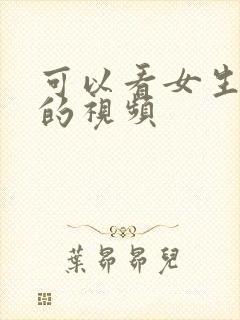 可以看女生
的視頻
葉昴昴兒